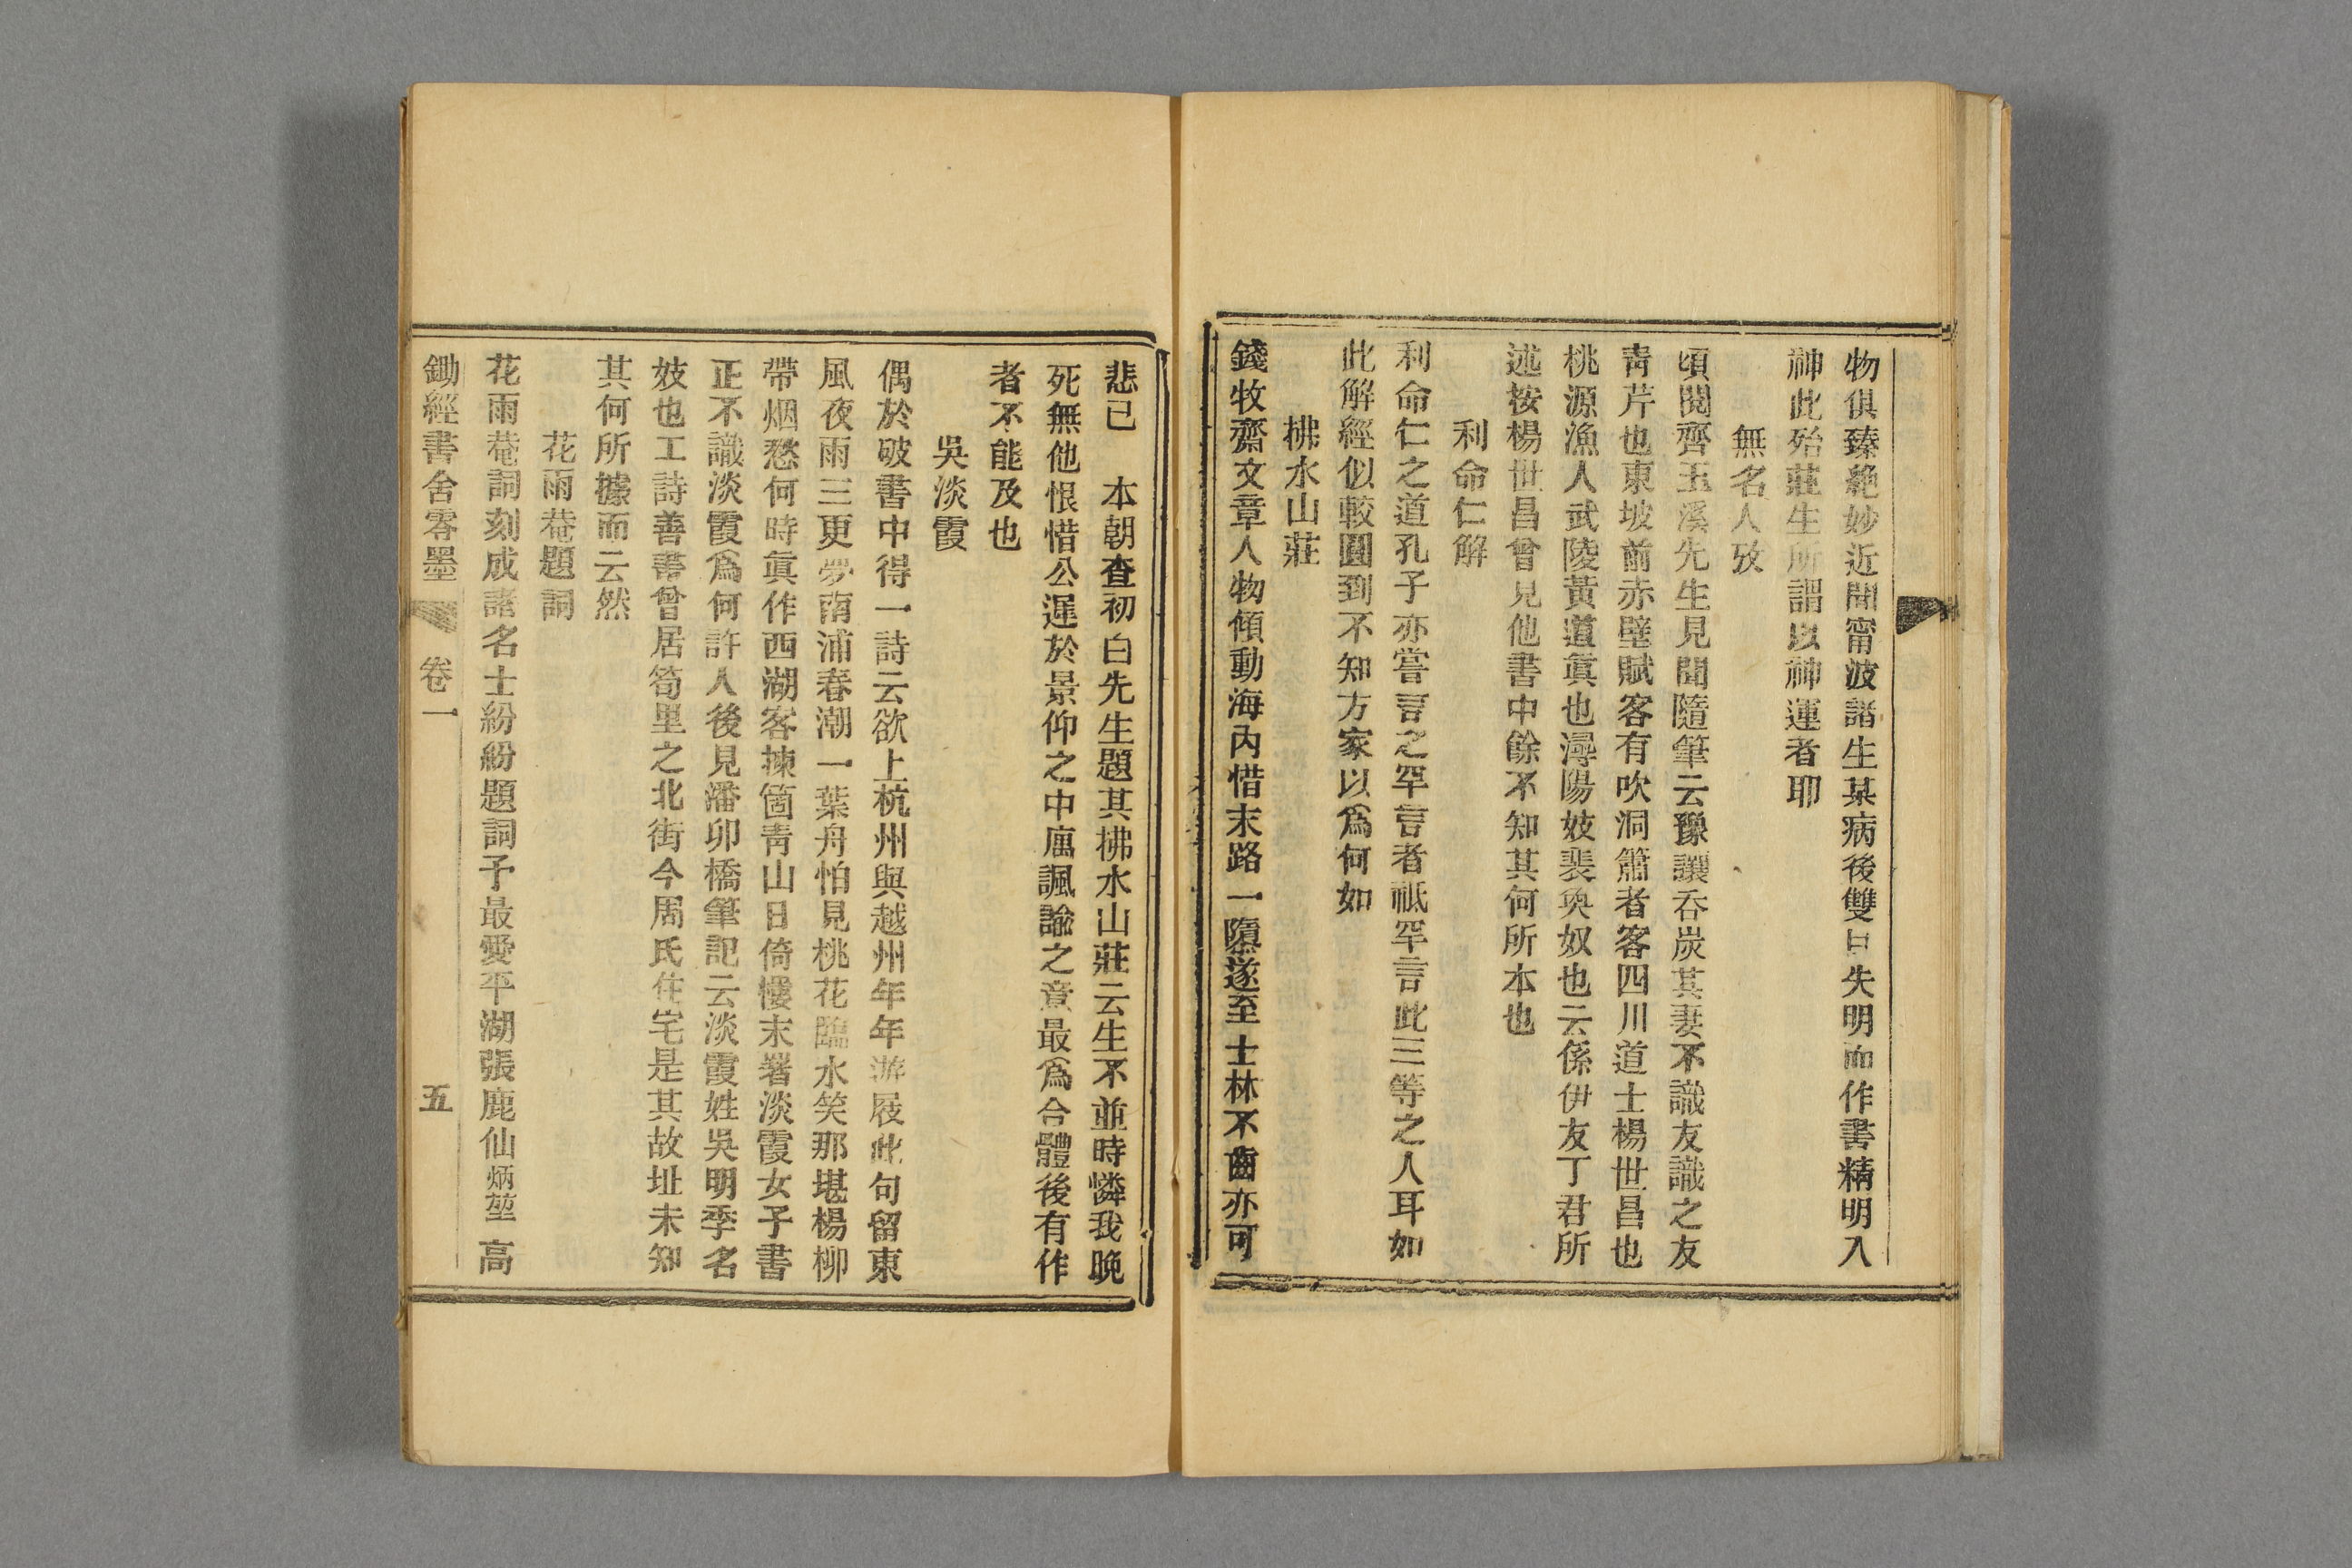 物俱臻絶妙近聞甯波諸生某病後雙目失明而作書精明入
神此殆莊生所謂以神運者耶
無名人攷
頃閱齊玉溪先生見聞隨筆云豫讓呑炭其妻不識友識之友
靑芹也東坡前赤壁賦客有吹洞簫者客四川道士楊世昌也
桃源漁人武陵黃道眞也潯陽妓裴奐奴也云係伊友丁君所
述按楊世昌曾見他書中餘不知其何所本也
利命仁解
利命仁之道孔子亦嘗言之罕言者祗罕言此三等之人耳如
此解經似較圓到不知方家以爲何如
拂水山莊
錢牧齋文章人物傾動海內惜末路一隳遂至士林不齒亦可
悲已　本朝查初白先生題其拂水山莊云生不並時憐我晚
死無他恨惜公遲於景仰之中寓諷諭之意最爲合體後有作
者不能及也
吳淡霞
偶於破書中得一詩云欲上杭州與越州年年游屐此句留東
風夜雨三更夢南浦春潮一葉舟怕見桃花臨水笑那堪楊柳
帶烟愁何時眞作西湖客揀箇靑山日倚樓末署淡霞女子書
正不識淡霞爲何許人後見潘卯橋筆記云淡霞姓吳明季名
妓也工詩善書曾居筍里之北街今周氏住宅是其故址未知
其何所據而云然
花雨菴題詞
花雨菴詞刻成諸名士紛紛題詞予最愛平湖張鹿仙炳堃高
鋤經書舍零墨　卷一　五